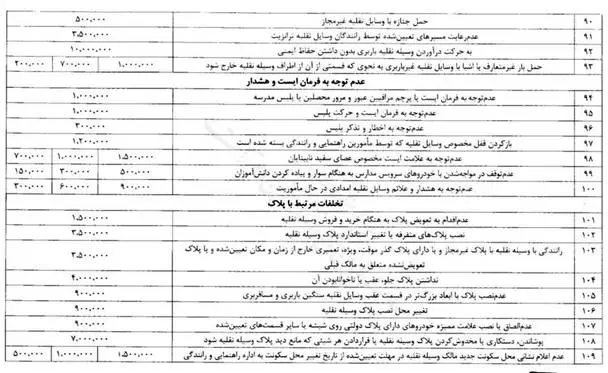 ۹۰ حمل جنازه با وسایل نقلیه غیرمجاز ۵۰۰.۰۰۰
۹۱ عدم‌رعایت مسیرهای تعیین‌شده توسط رانندگان وسایل نقلیه ترانزیت ۳.۵۰۰.۰۰۰
۹۲ به حرکت درآوردن وسیله نقلیه باربری بدون داشتن حفاظ ایمنی ۱۰.۰۰۰.۰۰۰
۹۳ حمل بار غیرمتعارف یا اشیا با وسایل نقلیه غیرباربری به نحوی که قسمتی از آن از اطراف وسیله نقلیه خارج شود ۱.۰۰۰.۰۰۰ ۷۰۰.۰۰۰ ۲۰۰.۰۰۰
عدم توجه به فرمان ایست و هشدار
۹۴ عدم‌توجه به فرمان ایست یا پرچم مراقبین عبور و مرور محصلین یا پلیس مدرسه ۱.۰۰۰.۰۰۰
۹۵ عدم‌توجه به فرمان ایست و حرکت پلیس ۱.۰۰۰.۰۰۰
۹۶ عدم‌توجه به اخطار و تذکر پلیس ۳۰۰.۰۰۰
۹۷ بازکردن قفل مخصوص وسایل نقلیه که توسط مأمورین راهنمایی و رانندگی بسته شده است ۱.۲۰۰.۰۰۰
۹۸ عدم‌توجه به علامت ایست مخصوص عصای سفید نابینایان ۱.۵۰۰.۰۰۰ ۱.۰۰۰.۰۰۰ ۷۰۰.۰۰۰
۹۹ عدم‌توقف در مواجه‌شدن با خودروهای سرویس مدارس به هنگام سوار و پیاده کردن دانش‌آموزان ۵۰۰.۰۰۰ ۳۰۰.۰۰۰ ۱۵۰.۰۰۰
۱۰۰ عدم‌توجه به هشدار و علائم وسایل نقلیه امدادی در حال مأموریت ۹۰۰.۰۰۰ ۶۰۰.۰۰۰ ۳۰۰.۰۰۰
تخلفات مرتبط با پلاک
۱۰۱ عدم‌اقدام به تعویض پلاک به هنگام خرید و فروش وسیله نقلیه ۱.۵۰۰.۰۰۰
۱۰۲ نصب پلاک‌های متفرقه یا تغییر استاندارد پلاک وسیله نقلیه ۳.۵۰۰.۰۰۰
۱۰۳ رانندگی با وسیله نقلیه با پلاک غیرمجاز و یا دارای پلاک گذر موقت، ویژه، تعمیری خارج از زمان و مکان تعیین‌شده و یا پلاک
تعویض‌نشده متعلق به مالک قبلی ۳.۵۰۰.۰۰۰
۱۰۴ نداشتن پلاک جلو، عقب یا ناخوانابودن آن ۴.۰۰۰.۰۰۰
۱۰۵ عدم‌نصب پلاک با ابعاد بزرگ‌تر در قسمت عقب وسایل نقلیه سنگین باربری و مسافربری ۹۰۰.۰۰۰
۱۰۶ تغییر محل نصب پلاک وسیله نقلیه ۹۰۰.۰۰۰
۱۰۷ عدم‌الصاق یا نصب علامت ممیزه خودروهای دارای پلاک دولتی روی شیشه یا سایر قسمت‌های تعیین‌شده ۹۰۰.۰۰۰
۱۰۸ پوشاندن، دستکاری یا مخدوش‌کردن پلاک وسیله نقلیه یا قراردادن هر شیئی که مانع دید پلاک وسیله نقلیه شود ۷.۰۰۰.۰۰۰
۱۰۹ عدم اعلام نشانی محل سکونت جدید مالک وسیله نقلیه در مهلت تعیین‌شده از تاریخ تغییر محل سکونت به اداره راهنمایی و رانندگی ۱.۵۰۰.۰۰۰ ۱.۰۰۰.۰۰۰ ۵۰۰.۰۰۰